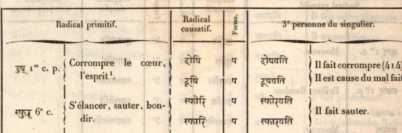 Radical primitif. Radical causatif. Forme. 3ᵉ personne du singulier.
दुष् 1ʳᵉ c. p. Corrompre le cœur, l'esprit¹. दोषि प दोषयति Il fait corrompre (414)
दूषि प दूषयति Il est cause du mal fait
6ᵉ c. S'élancer, sauter, bondir. स्फोरि प स्फोरयति Il fait sauter.
स्फारि प स्फारयति